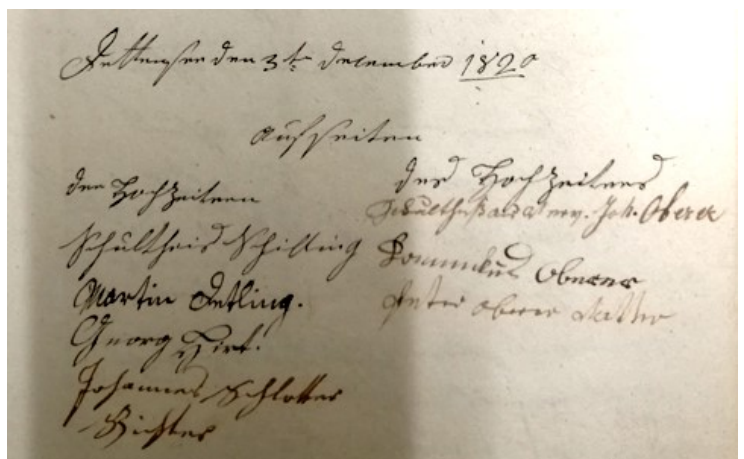 Dettensee den 3t. December 1820
Auf seiten
der Hochzeiterin
Schultheis Schilling
Martin Detling.
Georg Hirt.
Johannes Schlotter
Richter
des Hochzeiters
Joh. Oberer
Dominikus Oberer
Peter Oberer Vatter